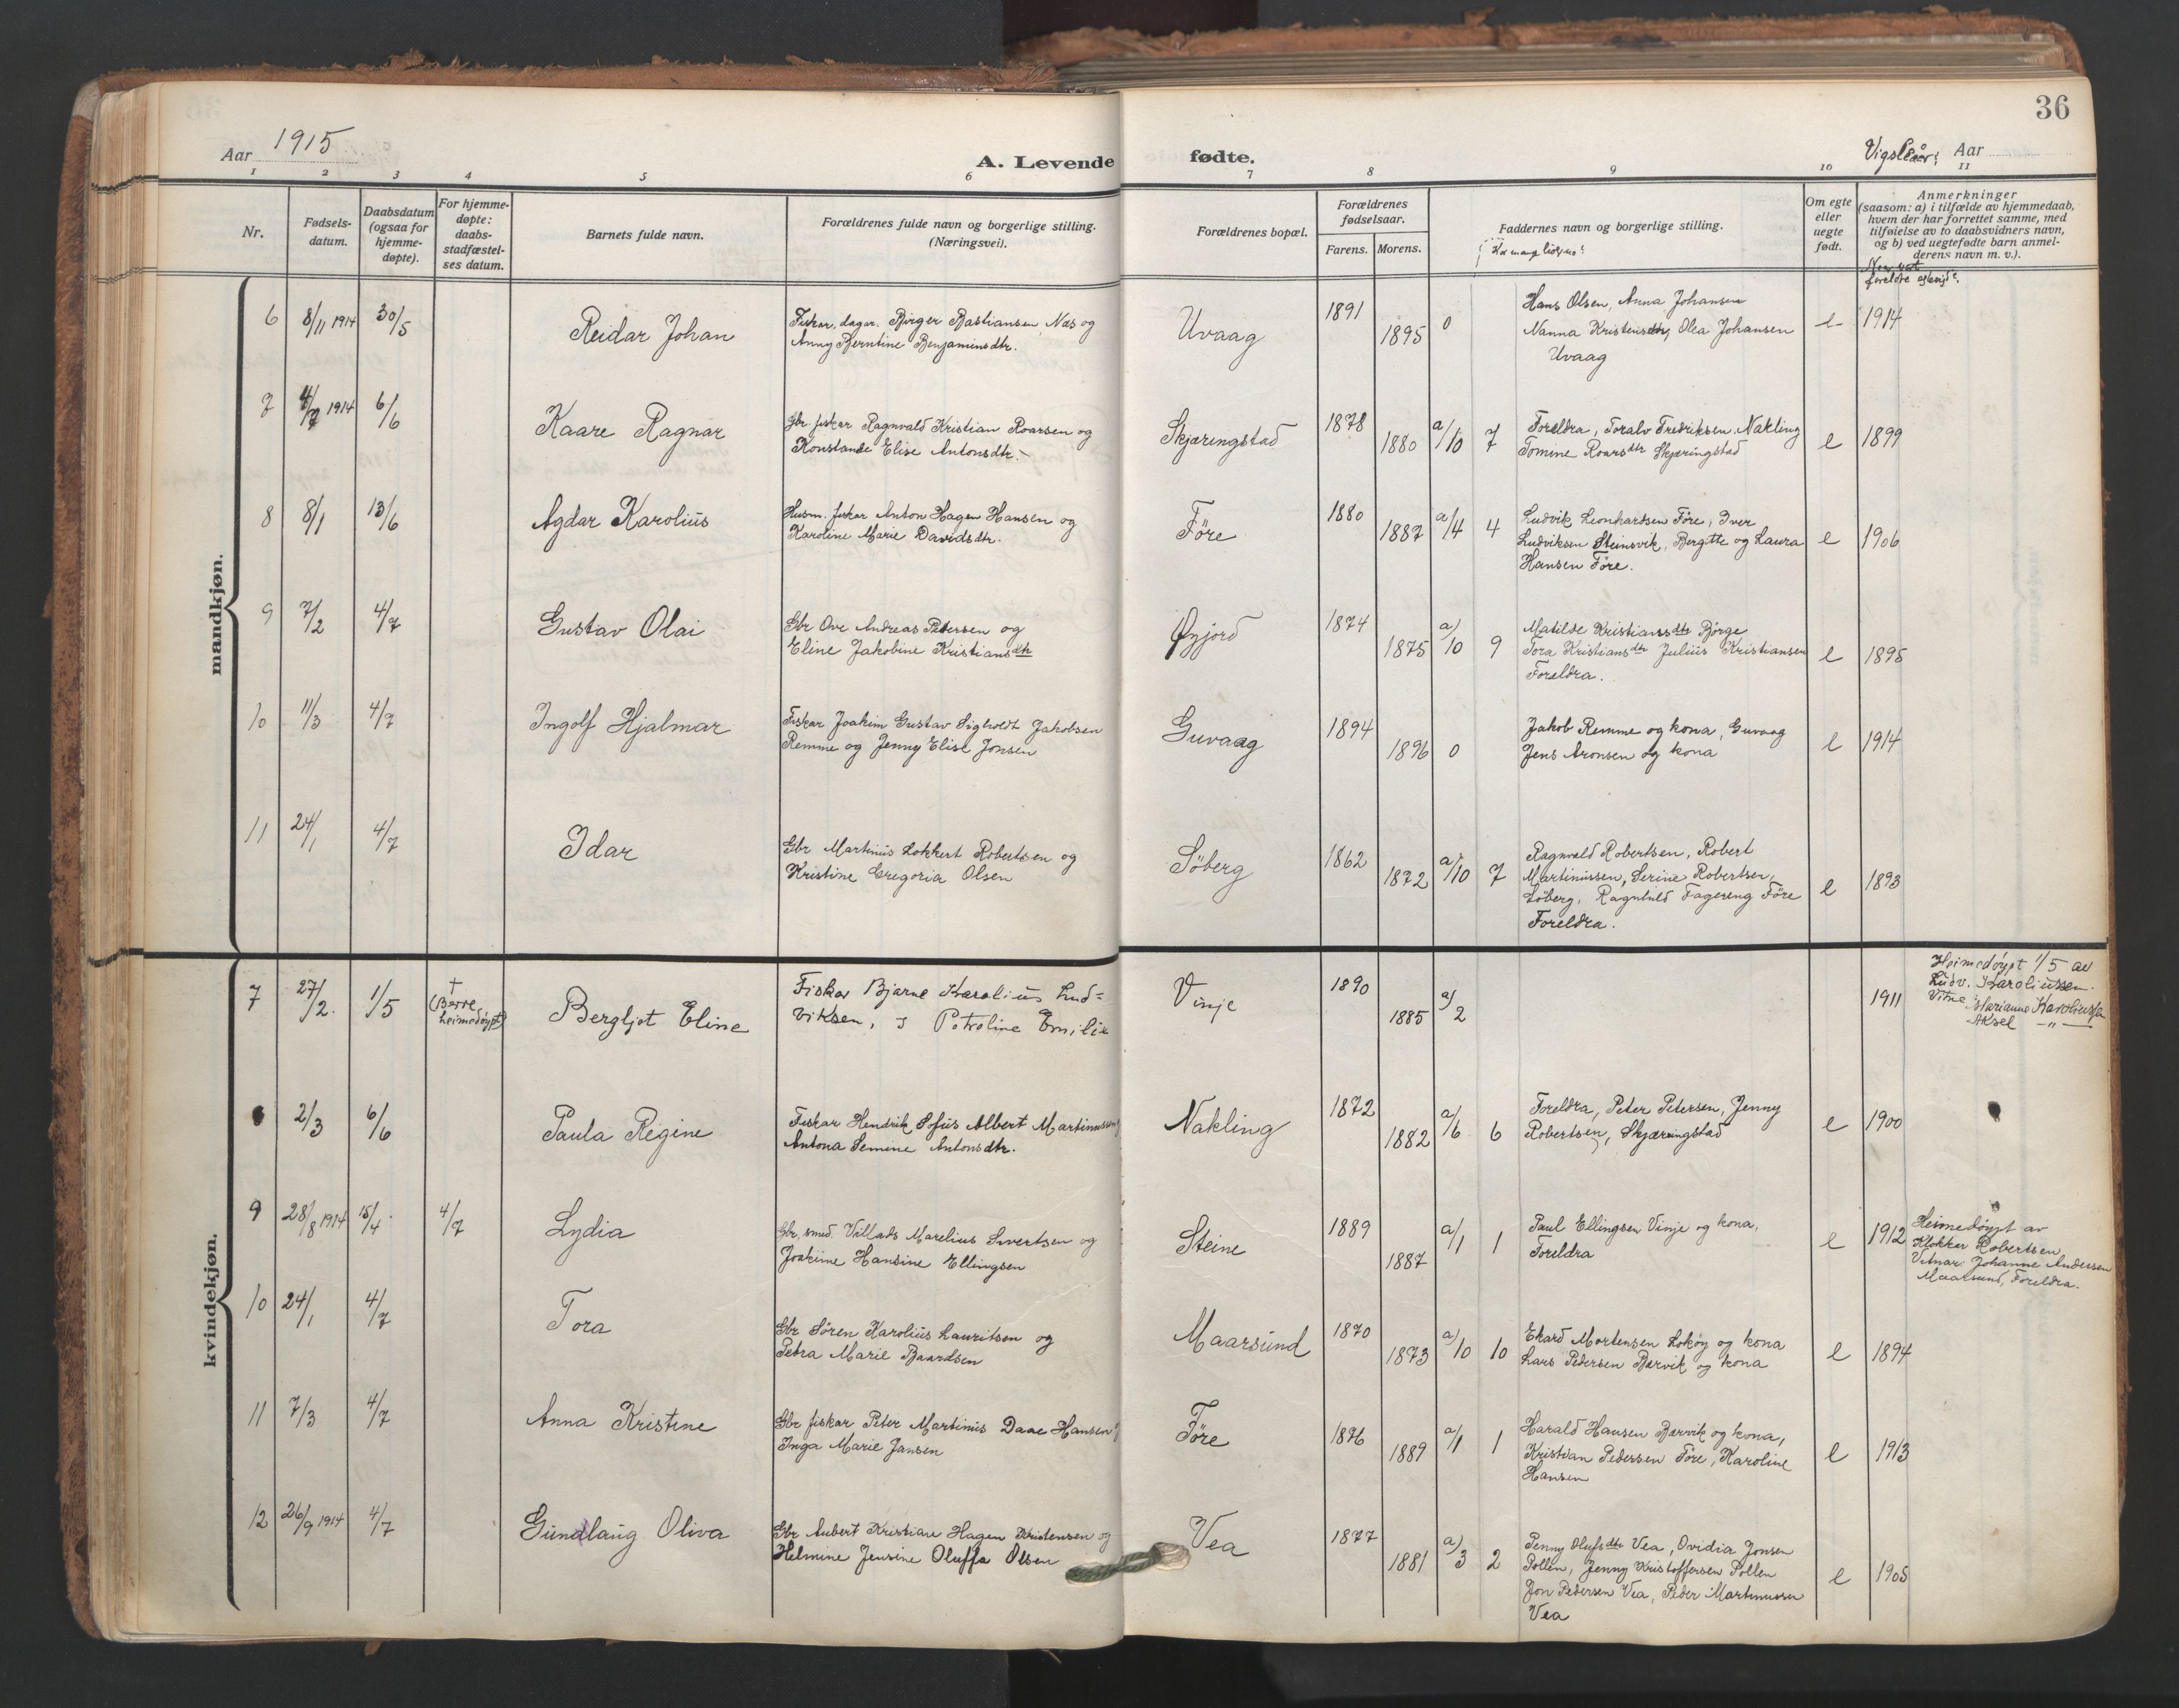 36
Aar 1915
A. Levende fødte.
Vigsleaar: Aar
1 2 3 4 5 6 7 8 9 10 11
Nr.
Fødsels-
datum.
Daabsdatum
(ogsaa for
hjemme-
døpte).
For hjemme-
døpte:
daabs-
stadfæstel-
ses datum.
Barnets fulde navn.
Forældrenes fulde navn og borgerlige stilling.
(Næringsvei).
Forældrenes bopæl.
Forældrenes
fødselsaar.
Farens. Morens.
Faddernes navn og borgerlige stilling.
Om egte
eller
uegte
født.
Anmerkninger
(saasom: a) i tilfælde av hjemmedaab,
hvem der har forrettet samme, med
tilføielse av to daabsvidners navn,
og b) ved uegtefødte barn anmel-
derens navn m. v.).
mandkjøn.
6 8/11 1914 30/5 Reidar Johan
Fiskar, dagar. Birger Bastiansen Næs og
Anny Berntine Benjaminsdtr.
Uvaag 1891 1895 0
Hans Olsen, Anna Johansen
Nanna Kristensdtr, Olea Johansen
Uvaag
e 1914
7 4/7 1914 6/6 Kaare Ragnar
Gbr. fiskar Ragnvald Kristian Roarsen og
Konstanse Elise Antonsdtr.
Skjæringstad 1878 1880 a/10 7
Foreldra, Toralv Fredriksen Nakling
Tomine Roarsdtr Skjæringstad
e 1899
8 8/1 13/6 Agdar Karolius
Husm. fiskar Anton Hagen Hansen og
Karoline Marie Davidsdtr.
Före 1880 1887 a/4 4
Ludvik Leonhardsen Före, Iver
Ludviksen Steinsvik, Bergitte og Laura
Hansen Före.
e 1906
9 7/2 4/7 Gustav Olai
Gbr Ove Andreas Petersen og
Eline Jakobine Kristiansdtr
Øyjord 1874 1875 a/10 9
Matilde Kristiansdtr Børge
Tora Kristiansdtr Julius Kristiansen
Foreldra.
e 1895
10 11/3 4/7 Ingolf Hjalmar
Fiskar Joakim Gustav Sigholdt Jakobsen
Remme og Jenny Elise Jonsen
Guvaag 1894 1896 0
Jakob Remme og kona, Guvaag
Jens Aronsen og kona
e 1914
11 24/1 4/7 Idar
Gbr Martinus Lokkert Robertsen og
Kristine Gregoria Olsen
Söberg 1862 1872 a/10 7
Ragnvald Robertsen, Robert
Martinussen, Serine Robertsen,
Söberg, Ragnhild Fagereng Före
Foreldra.
e 1893
kvindekjøn.
7 27/2. 1/5 † (Berre heimedøypt) Bergljot Eline
Fiskar Bjarne Karolius Lud=
viksen, og Petroline Emilie
Vinje 1890 1885 a/2
1911
Heimedøypt 1/5 av
Ludv. Karoliussen.
Vitne: Marianne Karoliussen
Aksel —"—
2/3 6/6 Paula Regine
Fiskar Hendrik Sofus Albert Martinussen
Antona Semine Antonsdtr.
Nakling 1872 1882 a/6 6
Foreldra, Peter Petersen, Jenny
Robertsen, Skjæringstad
e 1900
9 28/8 1914 15/4 4/7 Lydia
Gbr, smed. Villads Marelius Sivertsen og
Joakime Hansine Ellingsen
Steine 1889 1887 a/1 1
Paul Ellingsen Vinje og kona,
Foreldra
e 1912
Heimedøypt av
Klokkar Robertsen
Vitnar: Johanne Andersen
Maarsund, Foreldra.
10 24/1 4/7 Tora
Gbr Sören Karolius Lauritsen og
Petra Marie Baardsen
Maarsund 1870 1873 a/10 10
Ekard Mortensen Lokøy og kona
Lars Pedersen Bervik og kona
e 1894
11 7/3 4/7 Anna Kristine
Gbr fiskar Peter Martinus Daae Hansen og
Inga Marie Jansen
Före 1876 1889 a/1 1
Harald Hansen Bervik og kona,
Kristian Pedersen Före, Karoline
Hansen
e 1913
12 26/9 1914 4/7 Gundlaug Oliva
Gbr Aubert Kristian Hagen Kristensen og
Helmine Jensine Oluffa Olsen
Vea 1877 1881 a/3 2
Penny Olufsdtr Vea, Ovidia Jonsen
Pollen, Jenny Kristoffersen Pollen
Jon Pedersen Vea, Peder Martinussen
Vea
e 1905